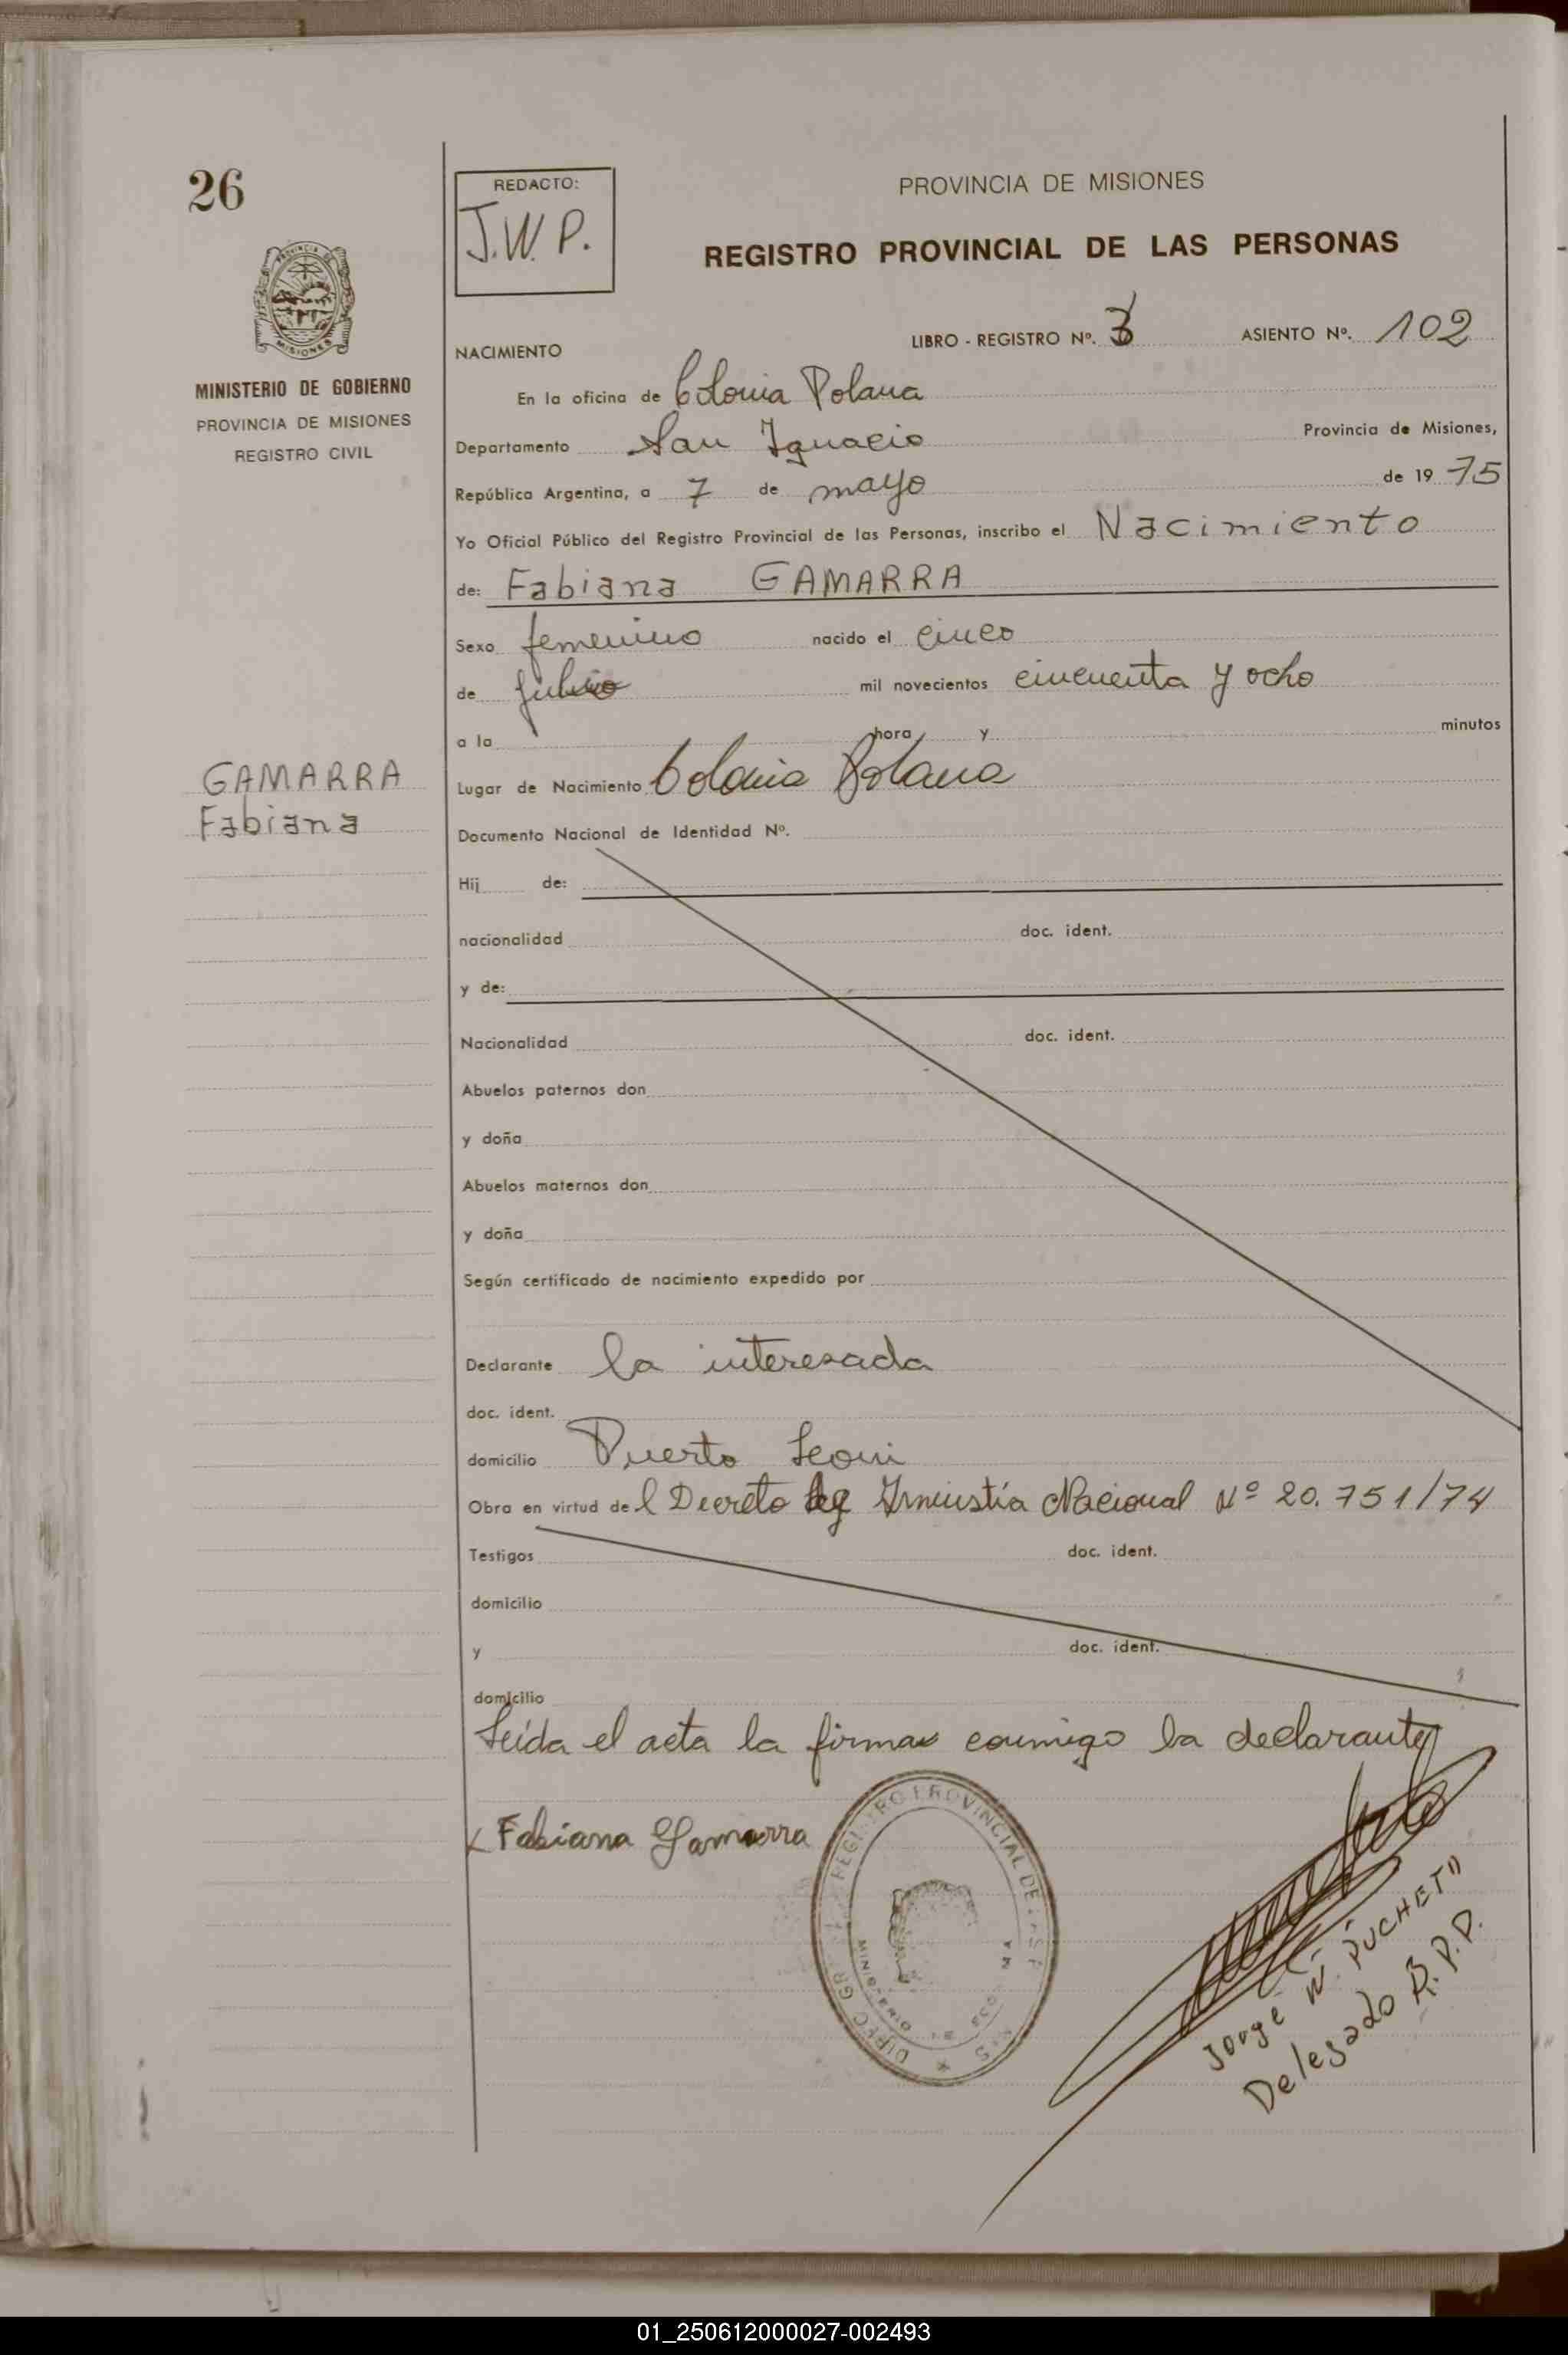 26
REDACTO:
J.W.P.
PROVINCIA DE MISIONES
REGISTRO PROVINCIAL DE LAS PERSONAS
MINISTERIO DE GOBIERNO
PROVINCIA DE MISIONES
REGISTRO CIVIL
LIBRO - REGISTRO Nº. 3 ASIENTO Nº. 102
NACIMIENTO
En la oficina de Colonia Polana
Departamento San Ignacio Provincia de Misiones,
República Argentina, a 7 de mayo de 19 75
Yo Oficial Público del Registro Provincial de las Personas, inscribo el Nacimiento
de: Fabiana GAMARRA
Sexo femenino nacido el cinco
de julio mil novecientos cincuenta y ocho
a la hora y minutos
GAMARRA
Fabiana
Lugar de Nacimiento Colonia Polana
Documento Nacional de Identidad Nº.
Hij de:
nacionalidad doc. ident.
y de:
Nacionalidad doc. ident.
Abuelos paternos don
y doña
Abuelos maternos don
y doña
Según certificado de nacimiento expedido por
Declarante la interesada
doc. ident.
domicilio Puerto Leoni
Obra en virtud del Decreto Ley Amnistía Nacional Nº 20.751/74
Testigos doc. ident.
domicilio
y doc. ident.
domicilio
Leída el acta la firma conmigo la declarante
x Fabiana Gamarra
REGISTRO PROVINCIAL DE LAS
MISIONES
Jorge W. PUCHETA
Delegado R.P.P.
01_250612000027-002493